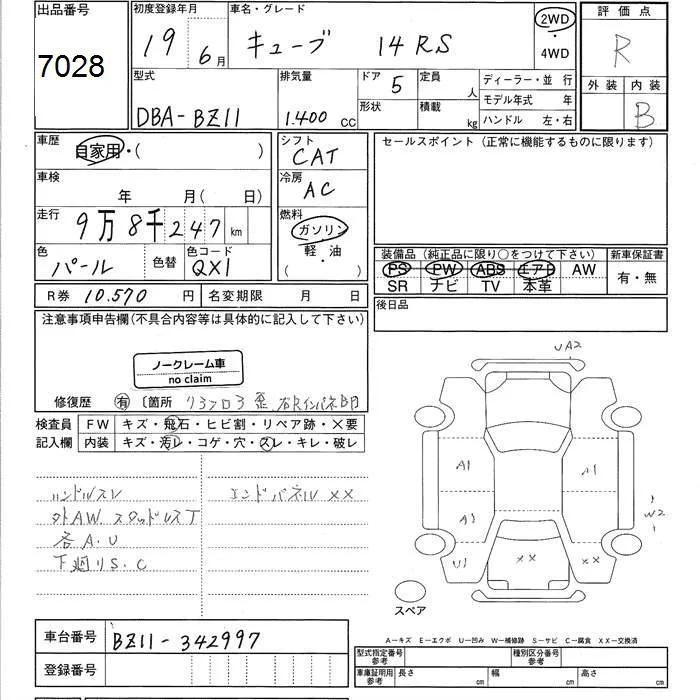 出品番号
7028
初度登録年月
19 6月
車名・グレード
キューブ 14RS
2WD
・
4WD
評価点
R
外装 内装
B
型式
DBA-BZ11
排気量
1.400 CC
ドア 5
形状
定員
人
積載
kg
ディーラー・並 行
モデル年式 年
ハンドル 左・右
車歴
自家用・( )
車検
年 月( 日)
走行
9万8千247 km
色
パール
色替
色コード
QX1
シフト
CAT
冷房
AC
燃料
ガソリン
軽・油
( ・ )
セールスポイント(正常に機能するものに限ります)
装備品(純正品に限り○をつけて下さい)
PS PW ABS エアB AW
SR ナビ TV 本革
新車保証書
有・無
後日品
R券 10.570 円
名変期限 月 日
注意事項申告欄(不具合内容等は具体的に記入して下さい)
ノークレーム車
no claim
修復歴 有 〔箇所
検査員
記入欄
FW キズ・飛石・ヒビ割・リペア跡・×要
内装 キズ・汚レ・コゲ・穴・スレ・キレ・破レ
ハンドルスレ
外AW スタッドレスT
各A.U
下廻りS.C
エンドパネル XX
UA2
A1
A1
A1
U1
XX
XX
W2
スペア
A-キズ E-エクボ U-凹み W-補修跡 S-サビ C-腐食 XX-交換済
車台番号
BZ11-342997
登録番号
型式指定番号
参考
種別区分番号
参考
車庫証明用
参考
長さ cm
幅 cm
高さ cm